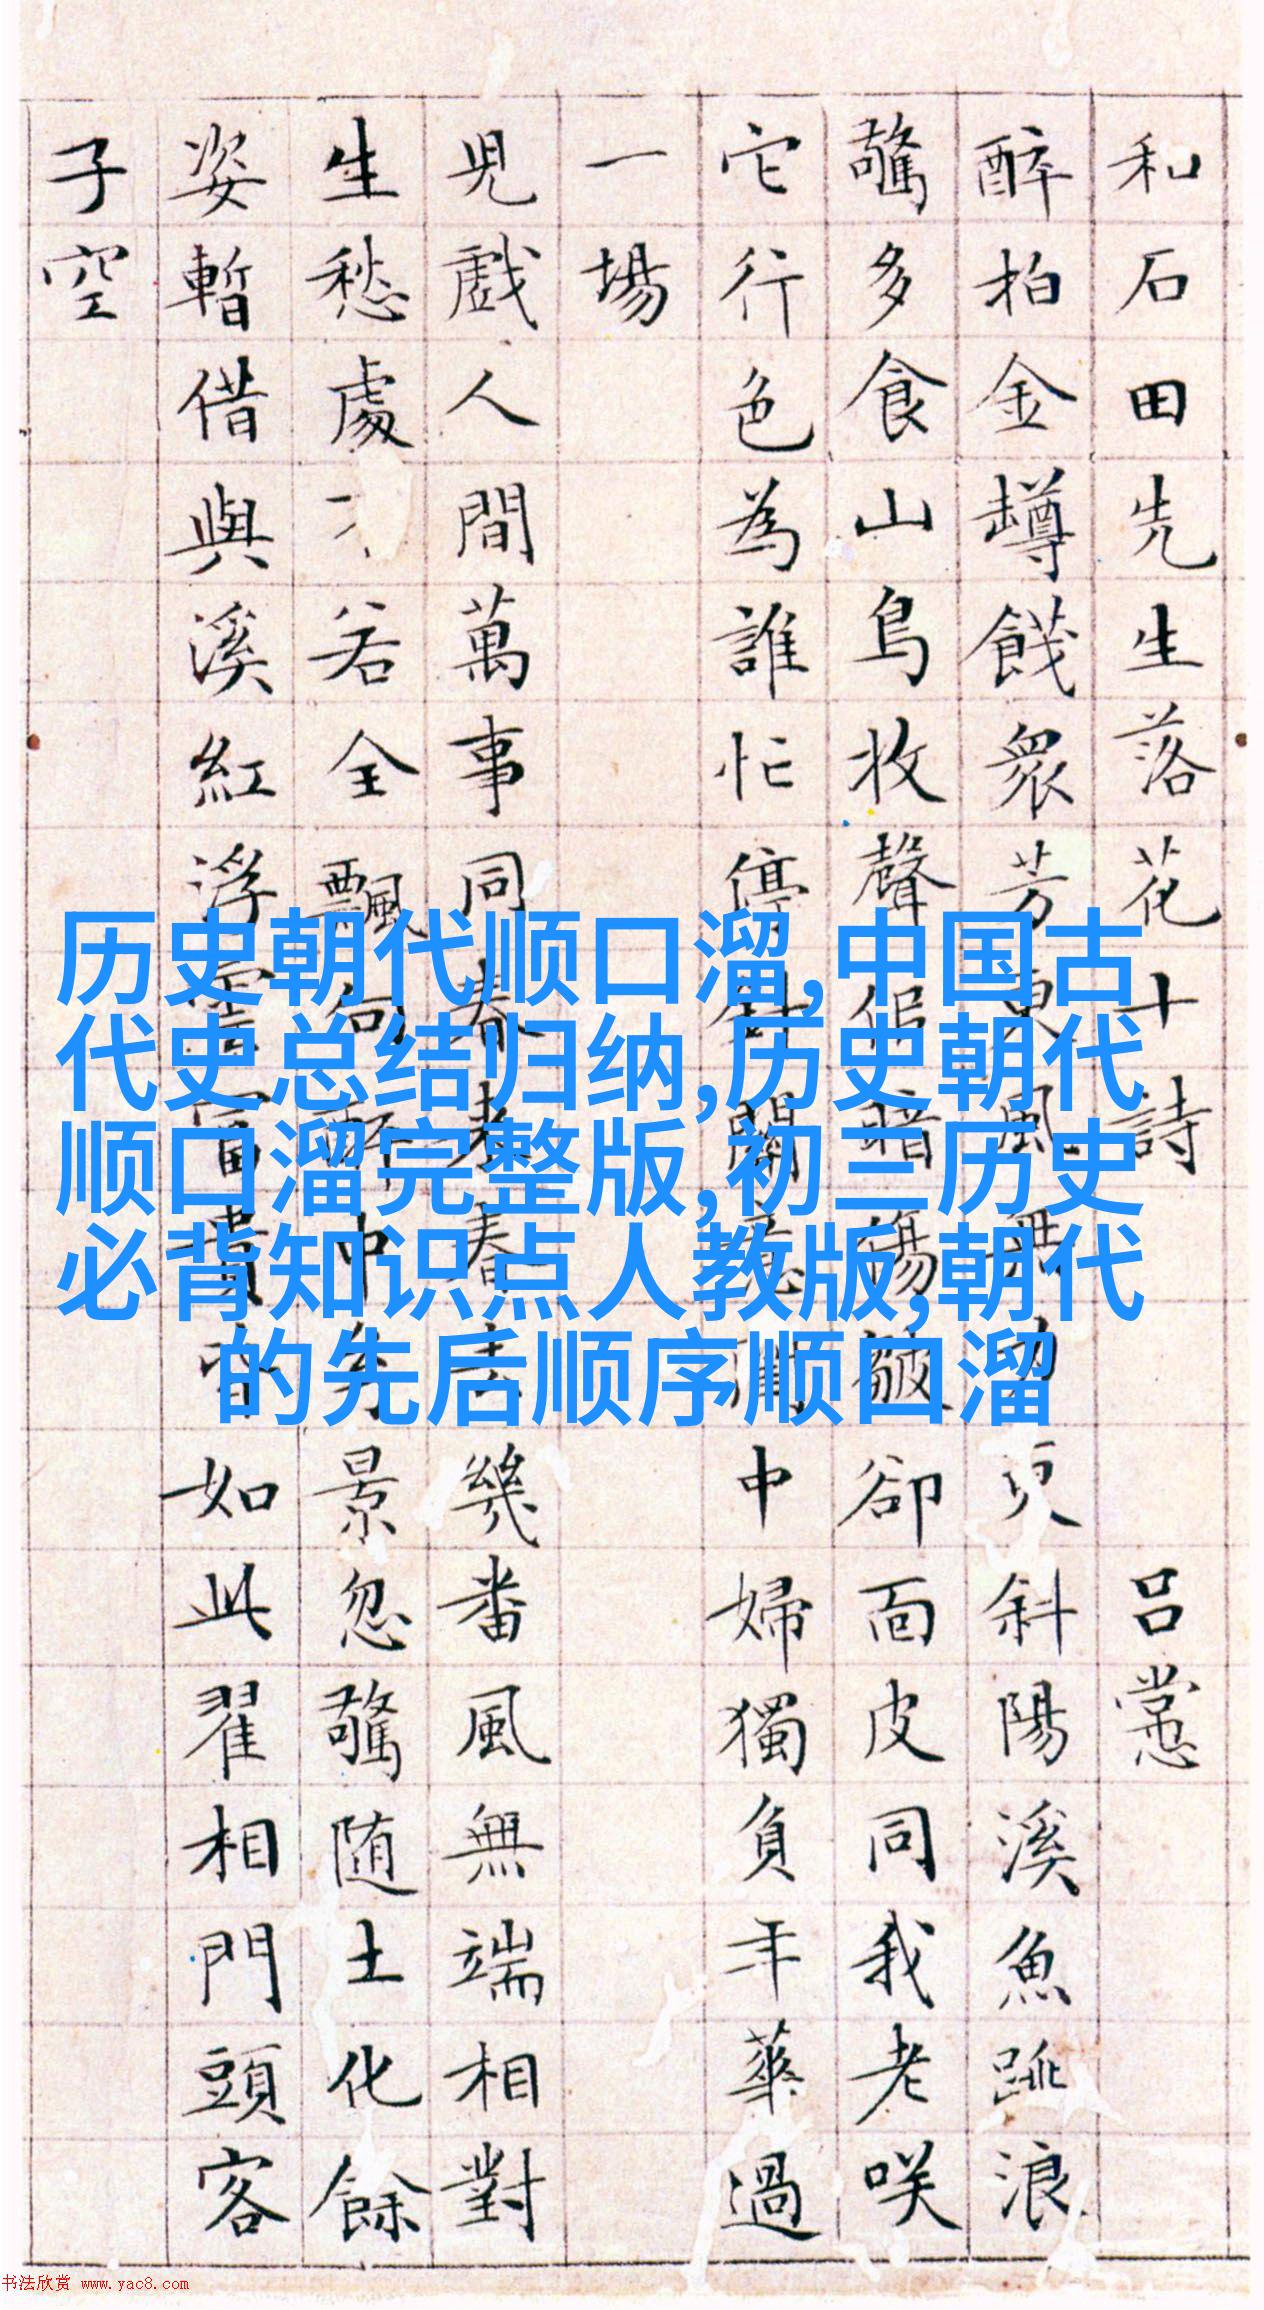 和石田先生落花十詩 呂㦂
醉拍金罇餞衆芳東風無力更斜陽溪魚跳浪
驚多食山鳥收聲倍暗傷皺卻面皮同我老咲
它行色為誰忙停針閨中婦獨負年華過
一場
児戲人間萬事同春来春去幾番風無端相對
生愁處不若全飄句醉中景忽驚随土化餘
姿暫借與溪紅浮雲富貴皆如此翟相門頭客
子空
历史朝代顺口溜,中国古
代史总结归纳,历史朝代
顺口溜完整版,初三历史
必背知识点人教版,朝代
的先后顺序顺口溜
书法欣赏 www.yac8.com